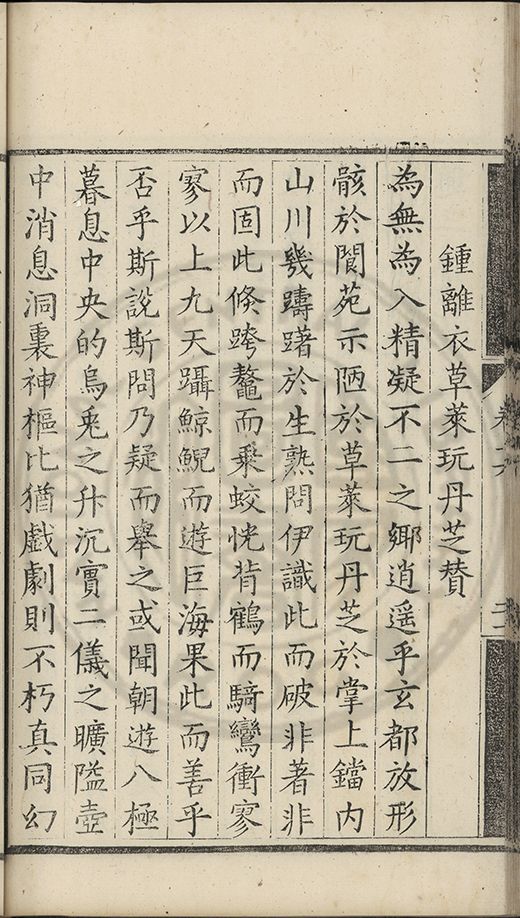 鍾離衣草萊玩丹芝賛
為無為入精凝不二之鄉逍遥乎玄都放形
骸於閬苑示陋於草萊玩丹芝於掌上鐺内
山川幾躊躇於生熟問伊識此而破非著非
而固此倐跨鼇而乗蛟恍背鶴而騎鸞衝寥
寥以上九天躡鯨鯢而遊巨海果此而善乎
否乎斯說斯問乃疑而舉之或聞朝遊八極
暮息中央的烏兎之升沉實二儀之曠隘壺
中消息洞裏神樞比猶戲劇則不朽真同幻